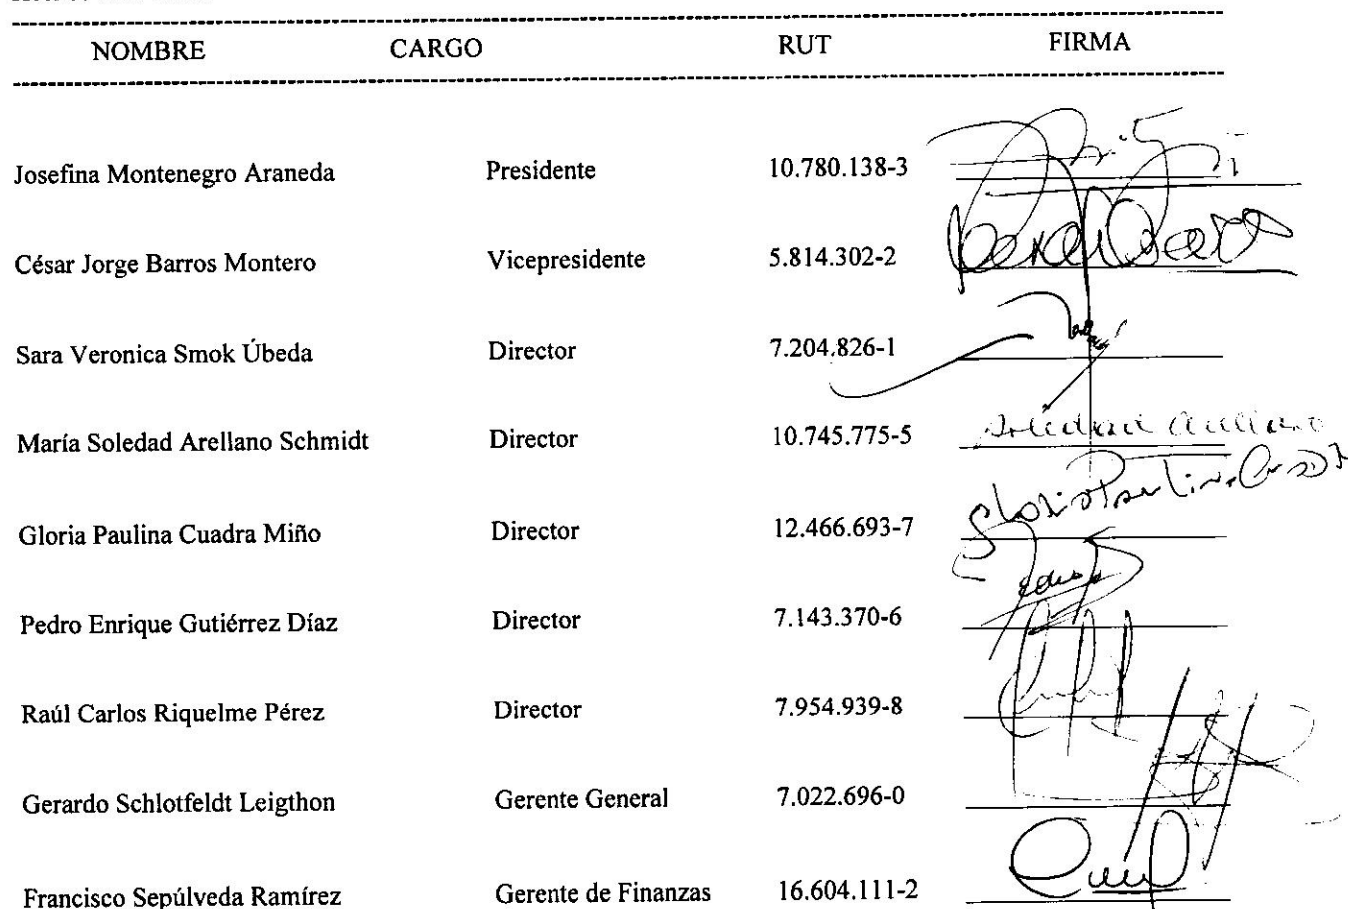 NOMBRE CARGO RUT FIRMA
Josefina Montenegro Araneda Presidente 10.780.138-3
César Jorge Barros Montero Vicepresidente 5.814.302-2
Sara Veronica Smok Úbeda Director 7.204.826-1
María Soledad Arellano Schmidt Director 10.745.775-5 Soledad Arellano
Gloria Paulina Cuadra Miño Director 12.466.693-7
Pedro Enrique Gutiérrez Díaz Director 7.143.370-6
Raúl Carlos Riquelme Pérez Director 7.954.939-8
Gerardo Schlotfeldt Leigthon Gerente General 7.022.696-0
Francisco Sepúlveda Ramírez Gerente de Finanzas 16.604.111-2